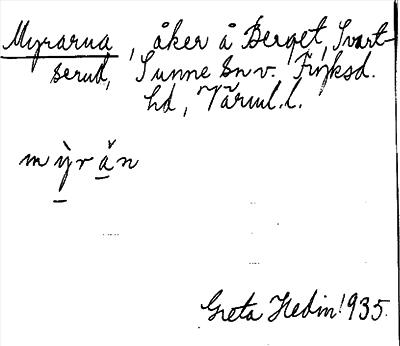 Myrarna, åker å Berget, Svart-
serud, Sunne sn v. Fryksd.
hd, Värml. l.
mỳrắn
Greta Hedin 1935.